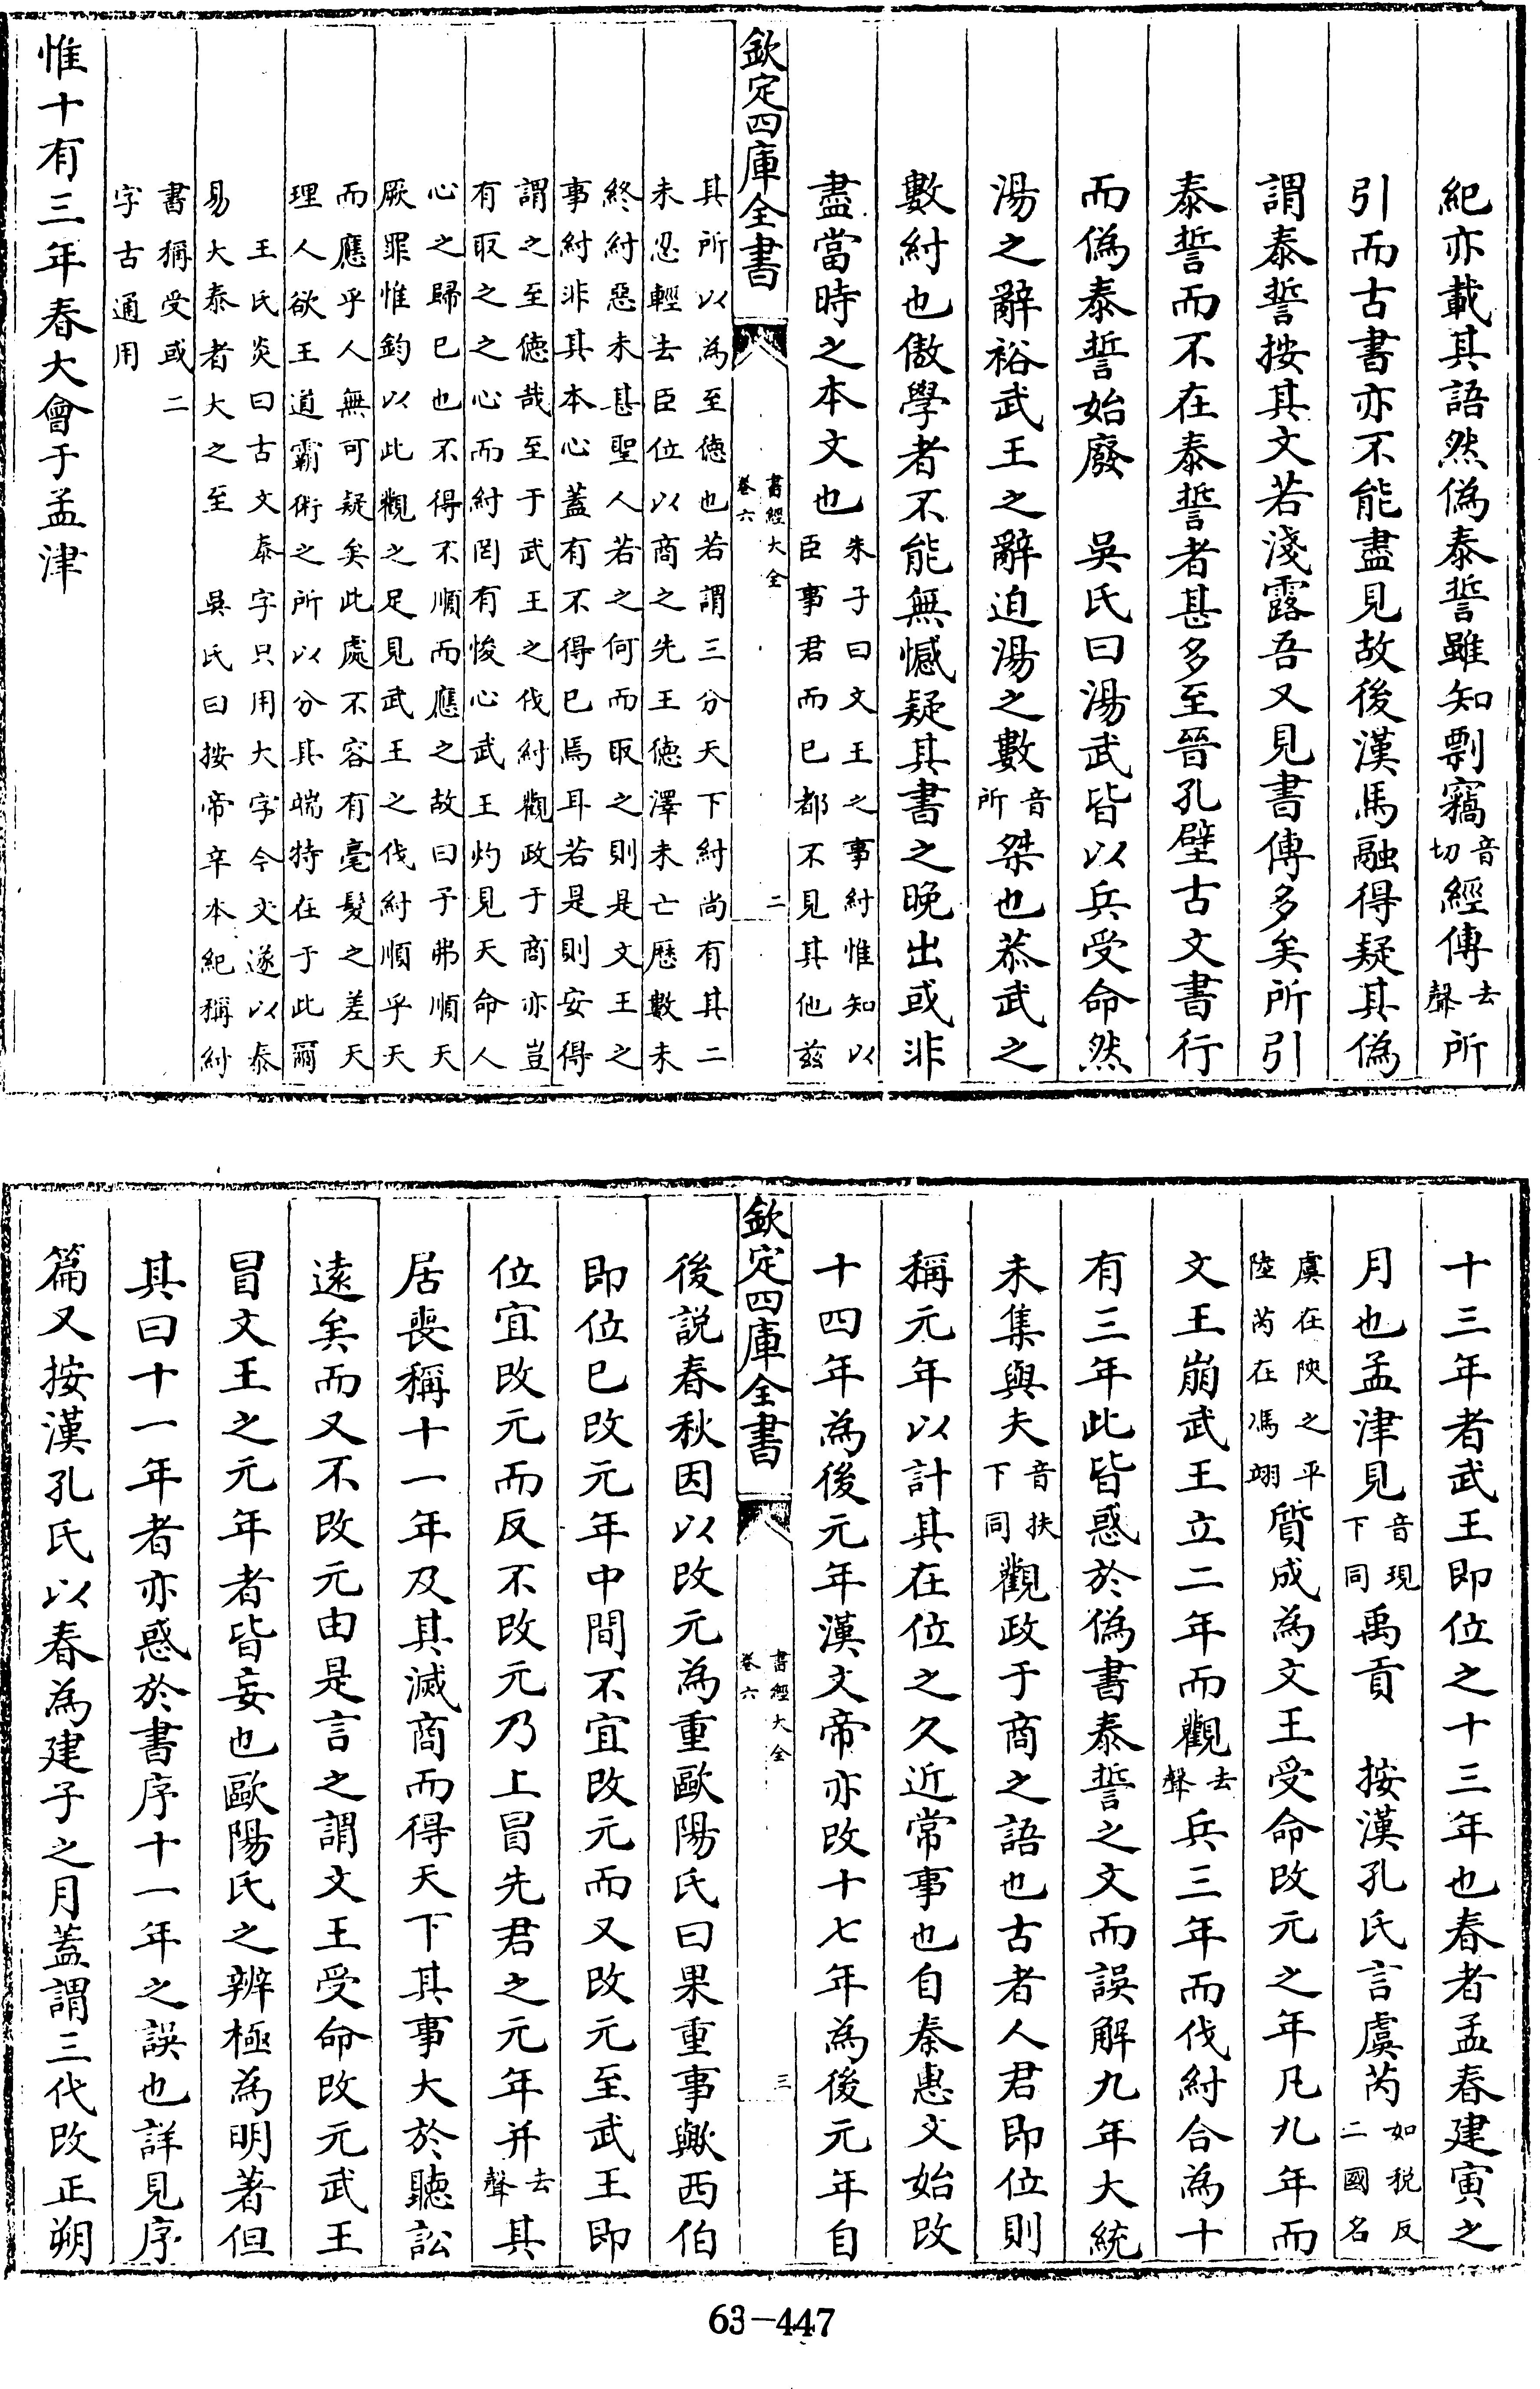 紀亦載其語然偽泰誓雖知剽竊音切經傳去聲所
引而古書亦不能盡見故後漢馬融得疑其偽
謂泰誓按其文若淺露吾又見書傳多矣所引
泰誓而不在泰誓者甚多至晉孔壁古文書行
而偽泰誓始廢　吳氏曰湯武皆以兵受命然
湯之辭裕武王之辭迫湯之數音所桀也恭武之
數紂也傲學者不能無憾疑其書之晚出或非
盡當時之本文也朱子曰文王之事紂惟知以
臣事君而已都不見其他茲
欽定四庫全書　書經大全　卷六　二
其所以為至德也若謂三分天下紂尚有其二
未忍輕去臣位以商之先王德澤未亡歷數未
終紂惡未甚聖人若之何而取之則是文王之
事紂非其本心蓋有不得已焉耳若是則安得
謂之至德哉至于武王之伐紂觀政于商亦豈
有取之之心而紂罔有悛心武王灼見天命人
心之歸已也不得不順而應之故曰予弗順天
厥罪惟鈞以此觀之足見武王之伐紂順乎天
而應乎人無可疑矣此處不容有毫髮之差天
理人欲王道霸術之所以分其端特在于此爾
王氏炎曰古文泰字只用大字今文遂以泰
易大泰者大之至　吳氏曰按帝辛本紀稱紂
書稱受或二
字古通用
惟十有三年春大會于孟津
十三年者武王即位之十三年也春者孟春建寅之
月也孟津見音現下同禹貢　按漢孔氏言虞芮如稅反二國名
虞在陝之平
陸芮在馮翊質成為文王受命改元之年凡九年而
文王崩武王立二年而觀去聲兵三年而伐紂合為十
有三年此皆惑於偽書泰誓之文而誤解九年大統
未集與夫音扶下同觀政于商之語也古者人君即位則
稱元年以計其在位之久近常事也自秦惠文始改
十四年為後元年漢文帝亦改十七年為後元年自
欽定四庫全書　書經大全　卷六　三
後說春秋因以改元為重歐陽氏曰果重事歟西伯
即位已改元年中間不宜改元而又改元至武王即
位宜改元而反不改元乃上冒先君之元年并去聲其
居喪稱十一年及其滅商而得天下其事大於聽訟
遠矣而又不改元由是言之謂文王受命改元武王
冒文王之元年者皆妄也歐陽氏之辨極為明著但
其曰十一年者亦惑於書序十一年之誤也詳見序
篇又按漢孔氏以春為建子之月蓋謂三代改正朔
63-447